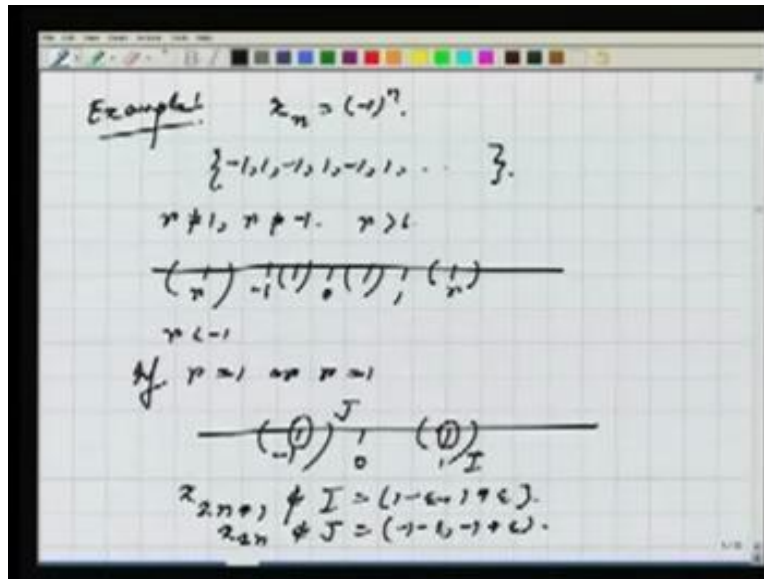 Example! x_n = (-1)^n.
{-1, 1, -1, 1, -1, 1, . . }.
r ≠ 1, r ≠ -1. r > 1
( r ) -1 ( ) 0 ( ) 1 ( r )
r < -1
If r = 1 or r = 1
J
( -1 ) 0 ( 1 ) I
x_{2n+1} ∉ I = (1-ε, 1+ε).
x_{2n} ∉ J = (-1-ε, -1+ε).